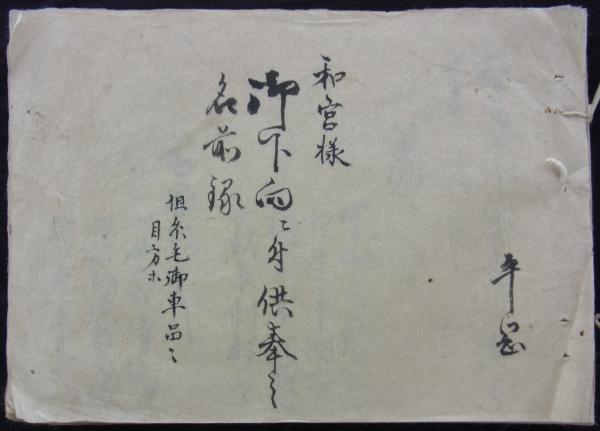 和宮様
御下向ニ付供奉之
名前録
但糸毛御車品々
目方等
平岡